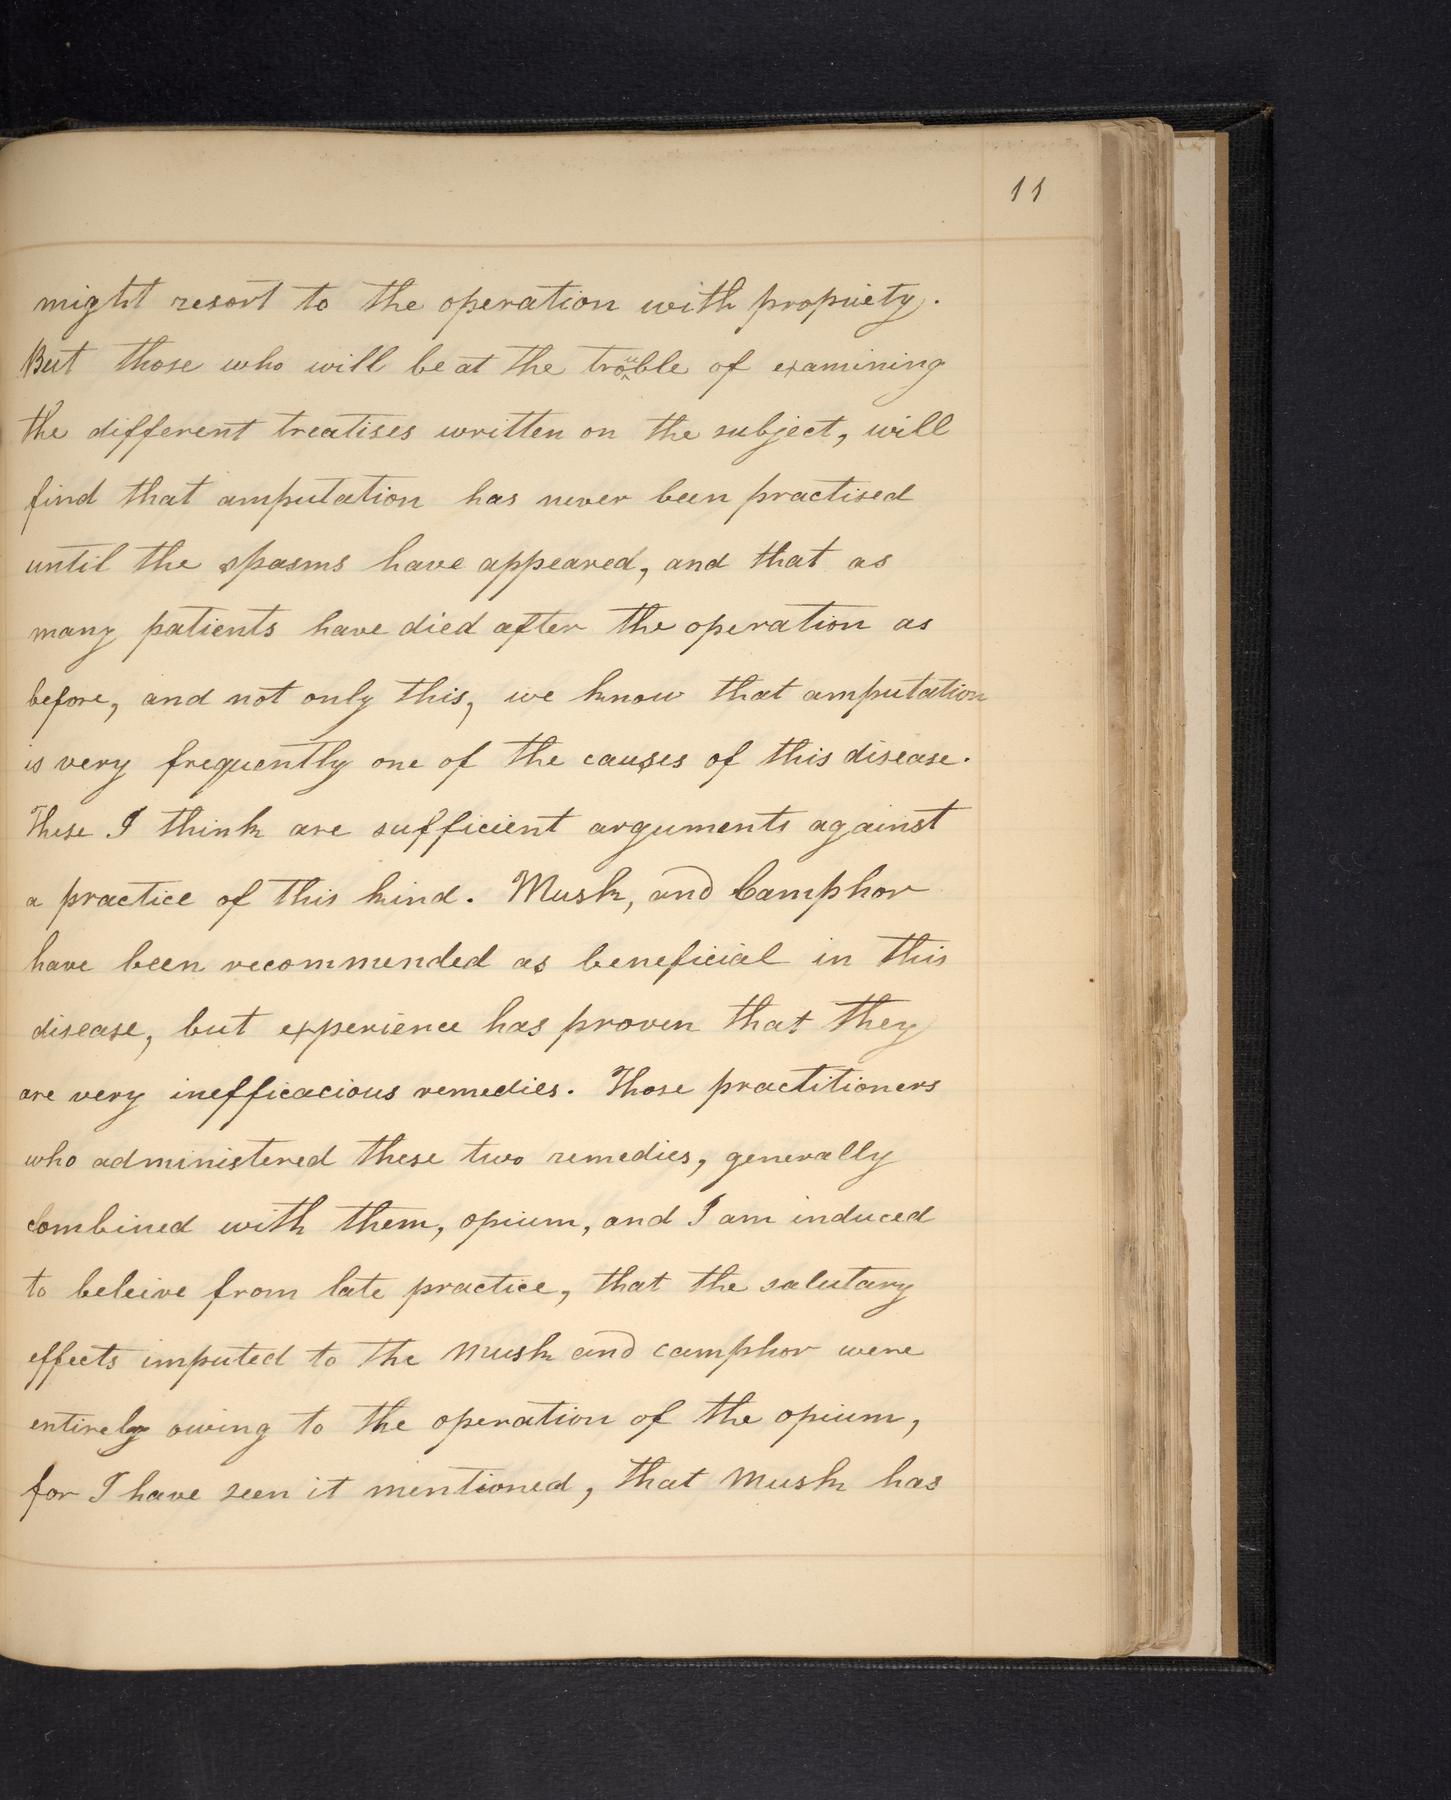 11
might resort to the operation with propriety.
But those who will be at the trouble of examining
the different treatises written on the subject, will
find that amputation has never been practised
until the spasms have appeared, and that as
many patients have died after the operation as
before, and not only this, we know that amputation
is very frequently one of the causes of this disease.
These I think are sufficient arguments against
a practice of this kind. Musk, and Camphor
have been recommended as beneficial in this
disease, but experience has proven that they
are very inefficacious remedies. Those practitioners
who administered these two remedies, generally
combined with them, opium, and I am induced
to beleive from late practice, that the salutary
effects imputed to the Musk and camphor were
entirely owing to the operation of the opium,
for I have seen it mentioned, that Musk has